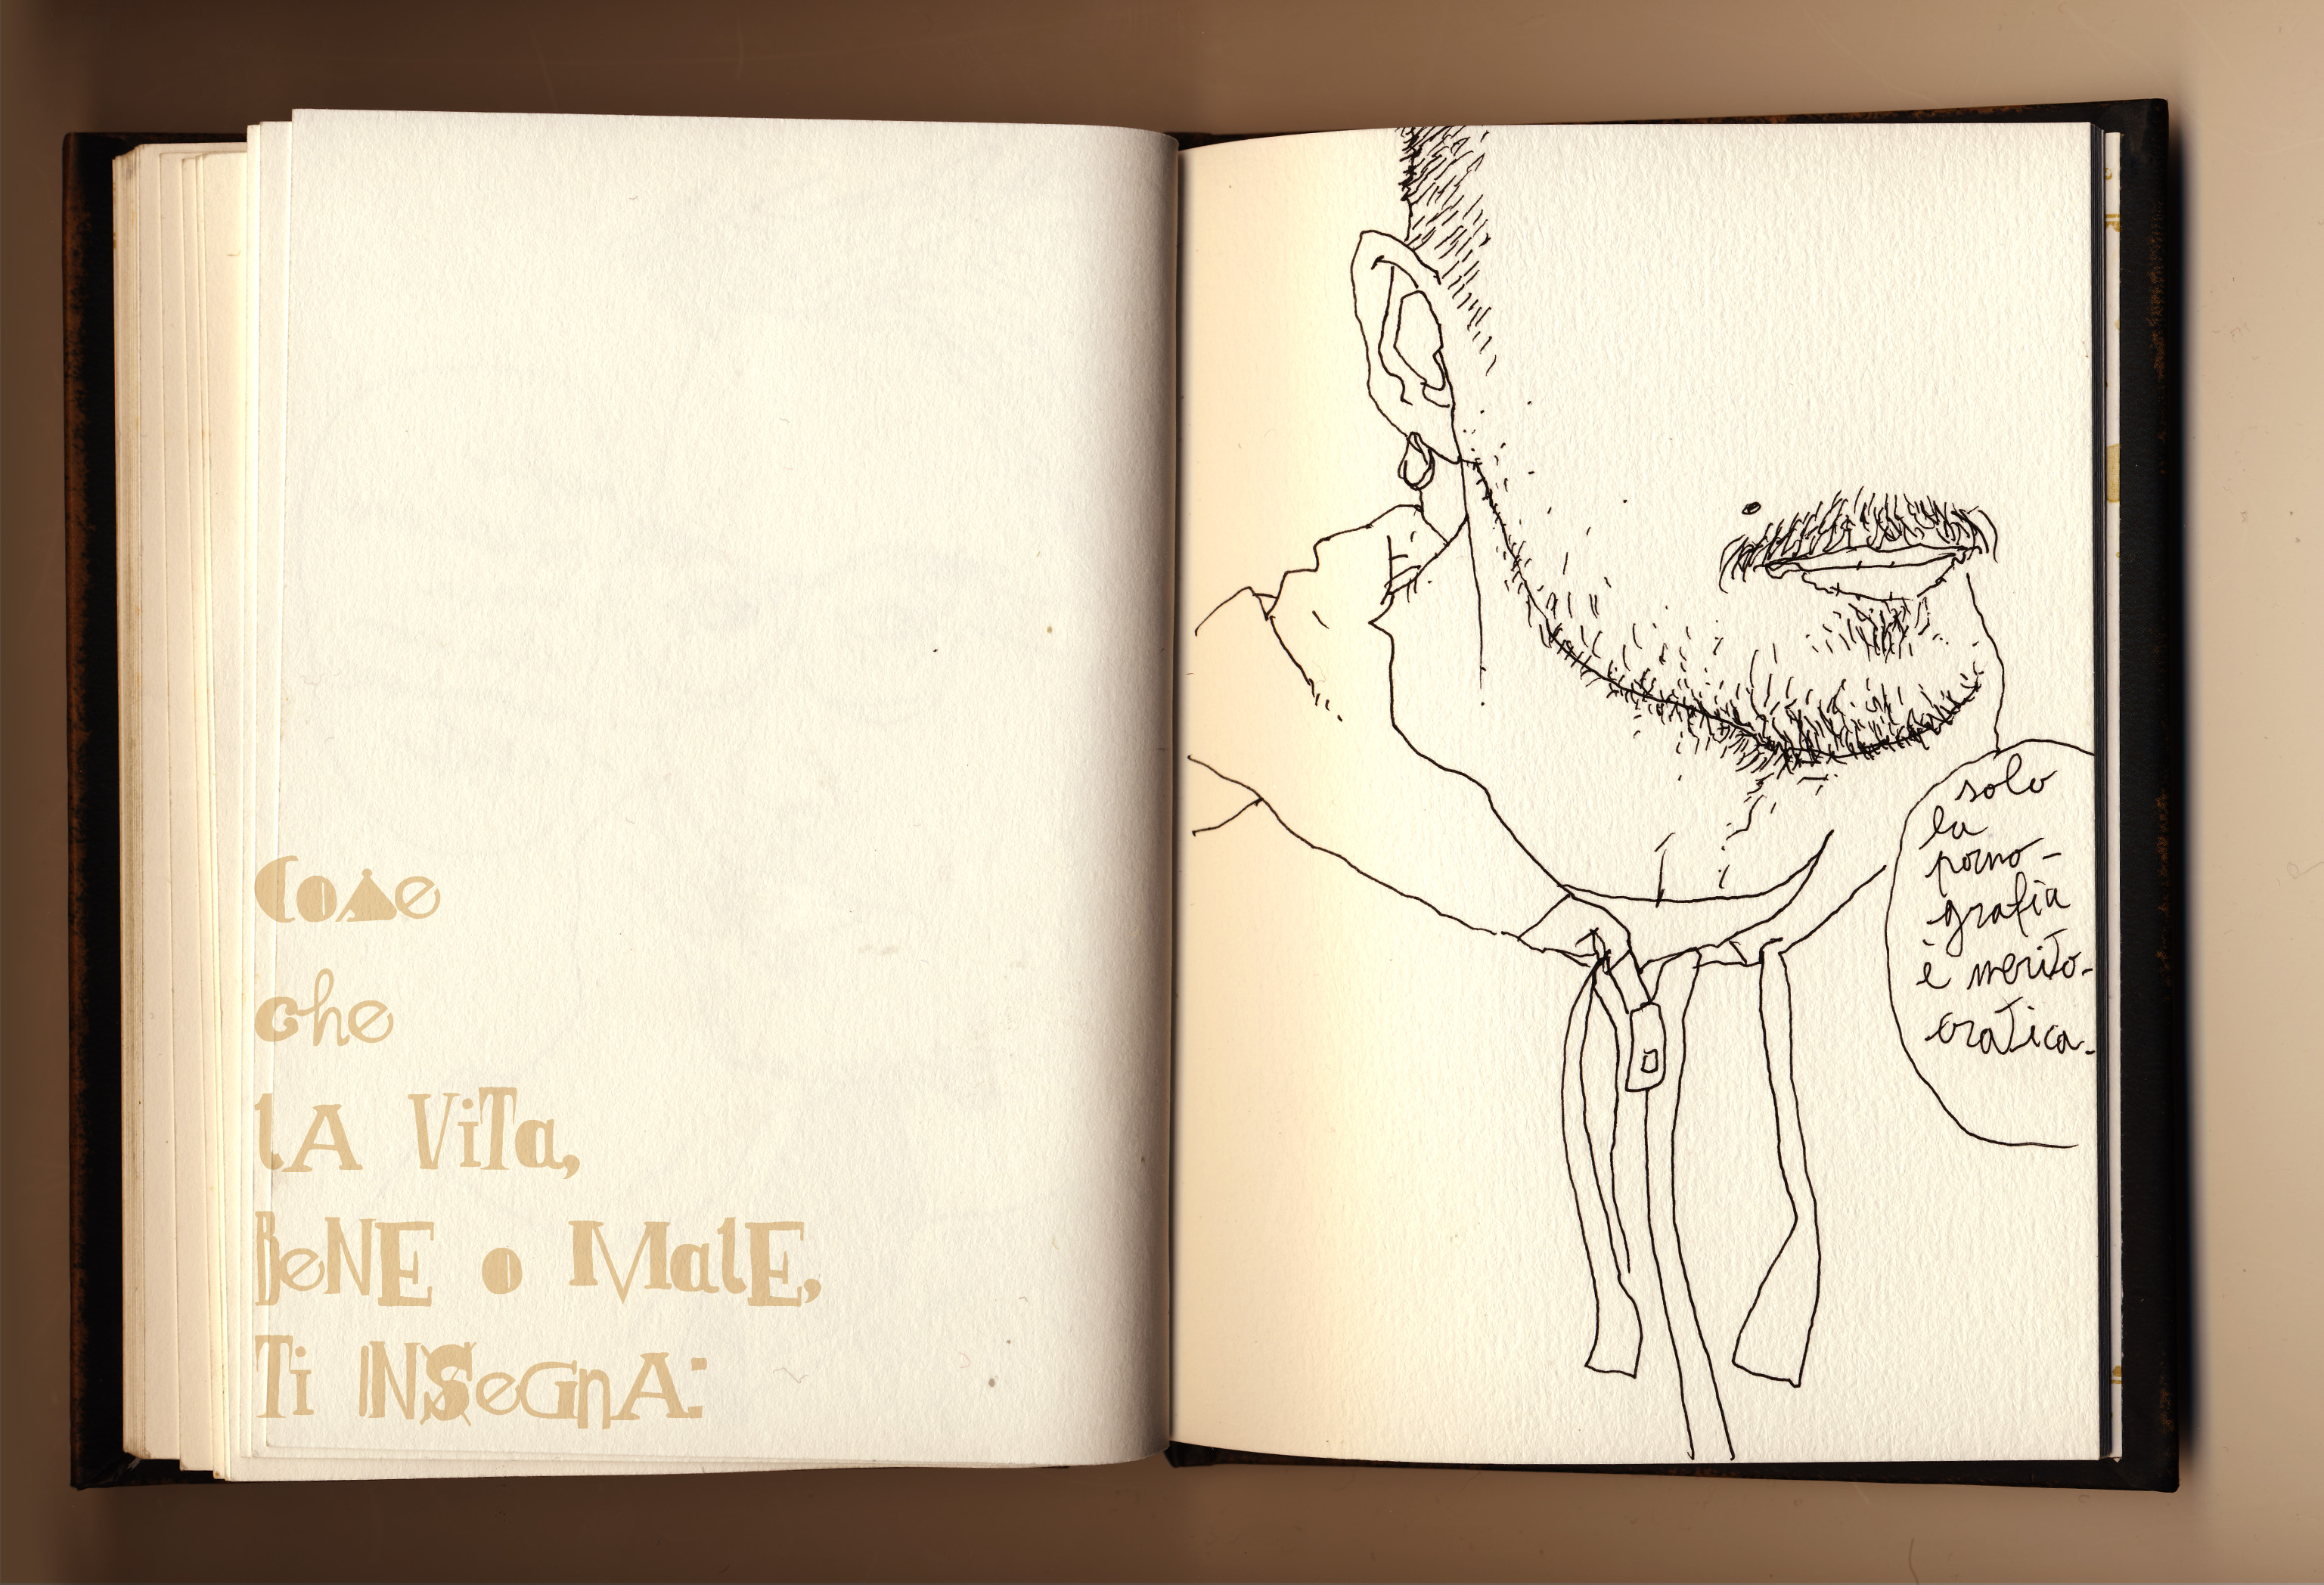 CoMe
che
lA ViTa,
BeNE o MalE,
Ti INSeGnA:
solo
la
porno-
grafia
è merito-
cratica.